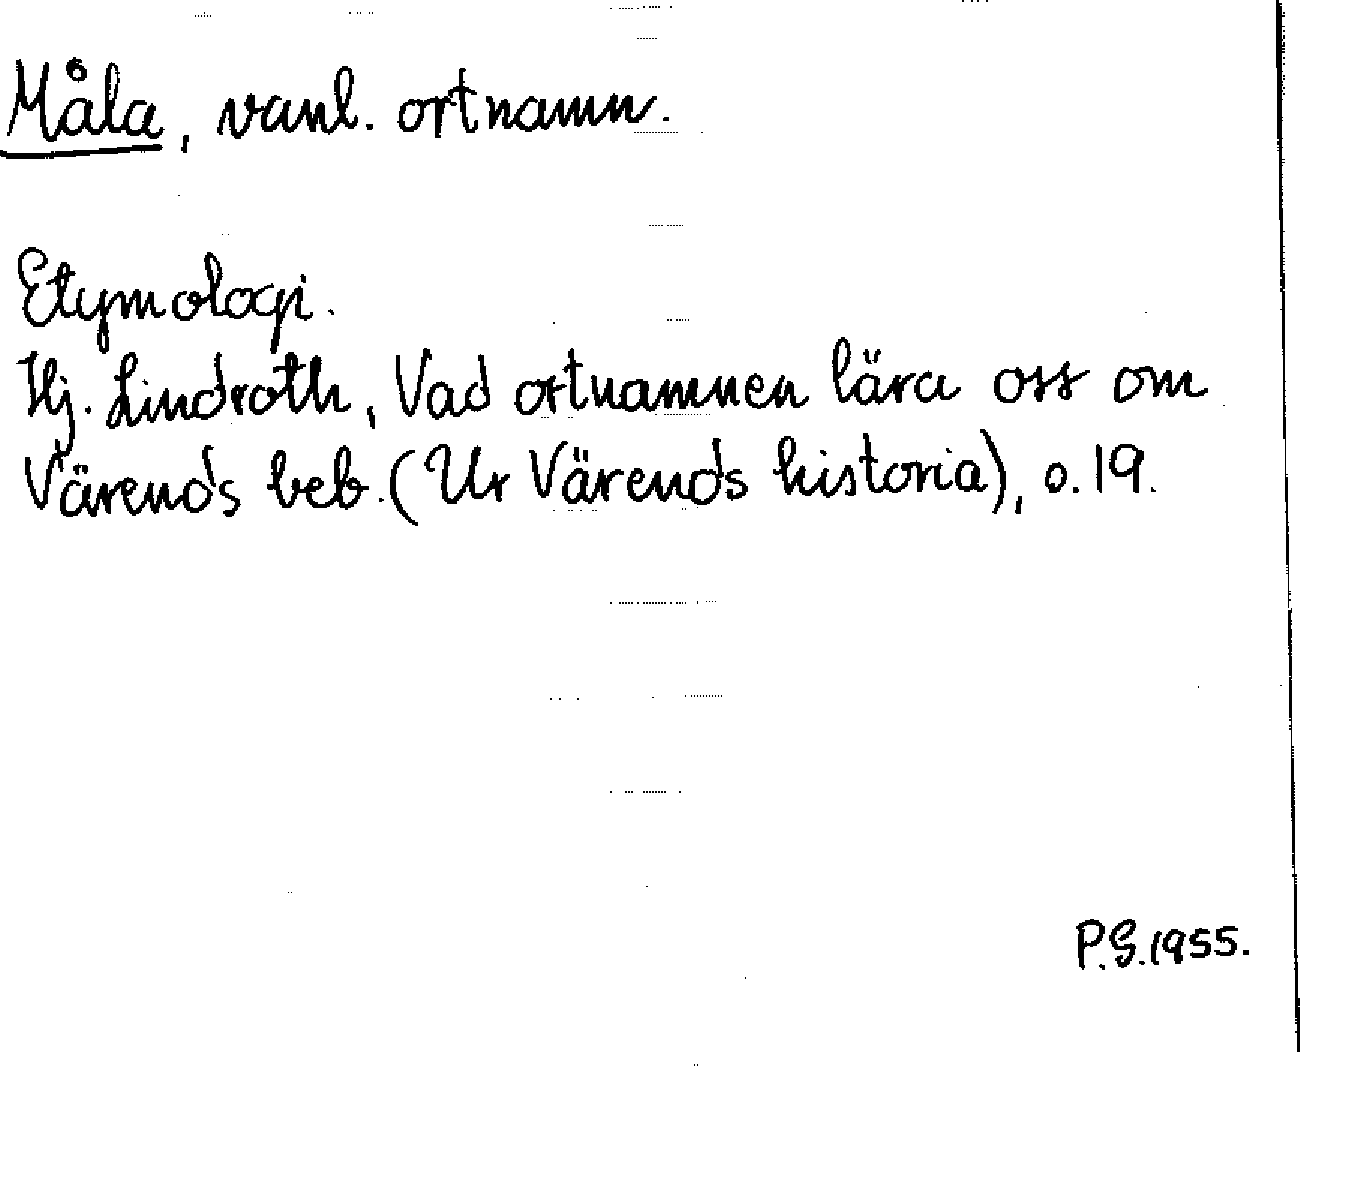 Måla, vanl. ortnamn.
Etymologi.
Hj. Lindroth, Vad ortnamnen lära oss om
Värends beb. (Ur Värends historia), s. 19.
P.G. 1955.